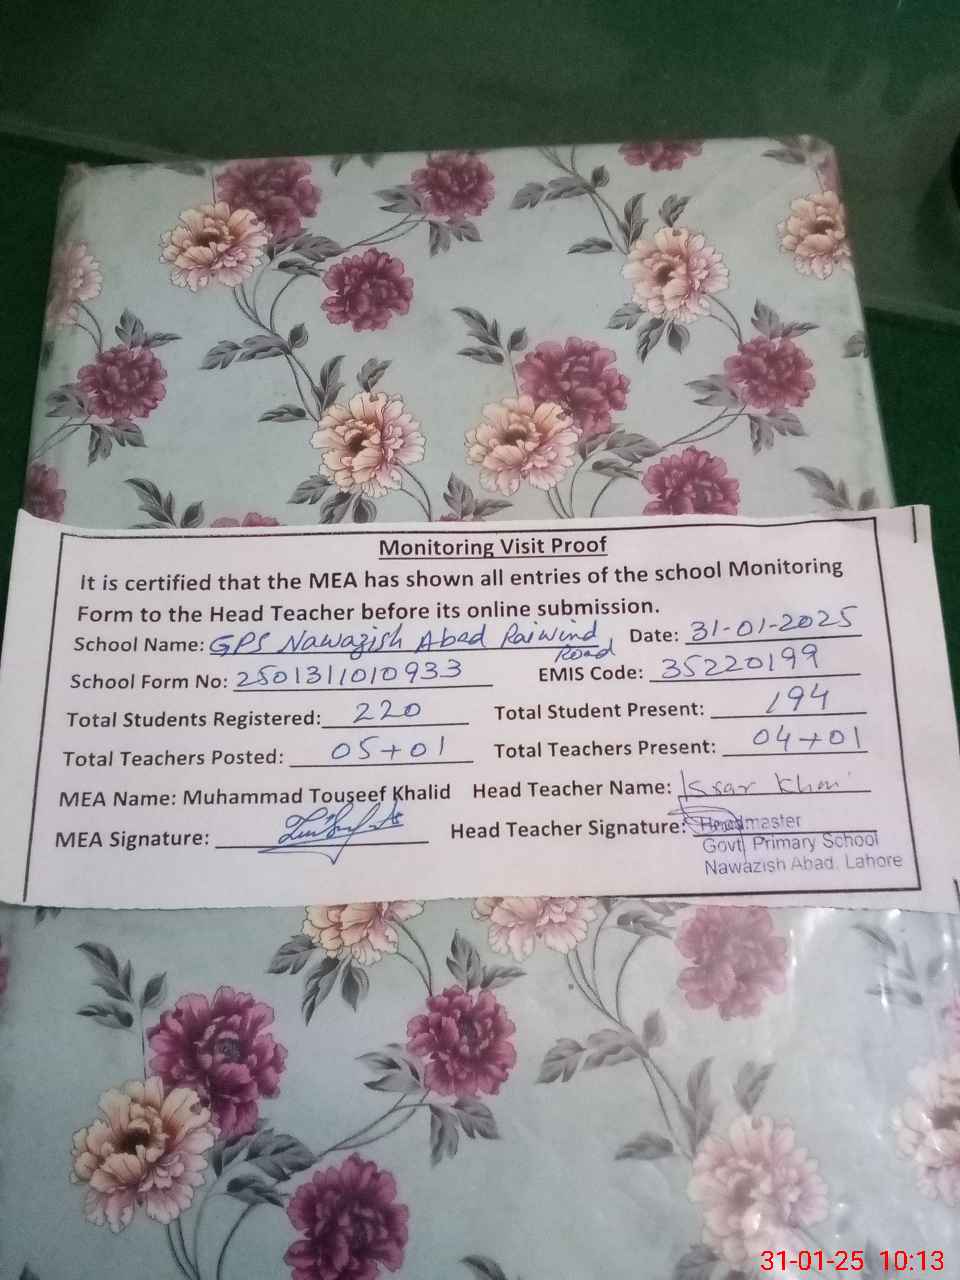 Monitoring Visit Proof
It is certified that the MEA has shown all entries of the school Monitoring
Form to the Head Teacher before its online submission.
School Name: GPS Nawazish Abad Raiwind Road Date: 31-01-2025
School Form No: 2501311010933 EMIS Code: 35220199
Total Students Registered: 220 Total Student Present: 194
Total Teachers Posted: 05+01 Total Teachers Present: 04+01
MEA Name: Muhammad Touseef Khalid Head Teacher Name: Israr Khan
MEA Signature: Head Teacher Signature: Headmaster
Govt Primary School
Nawazish Abad, Lahore
31-01-25 10:13